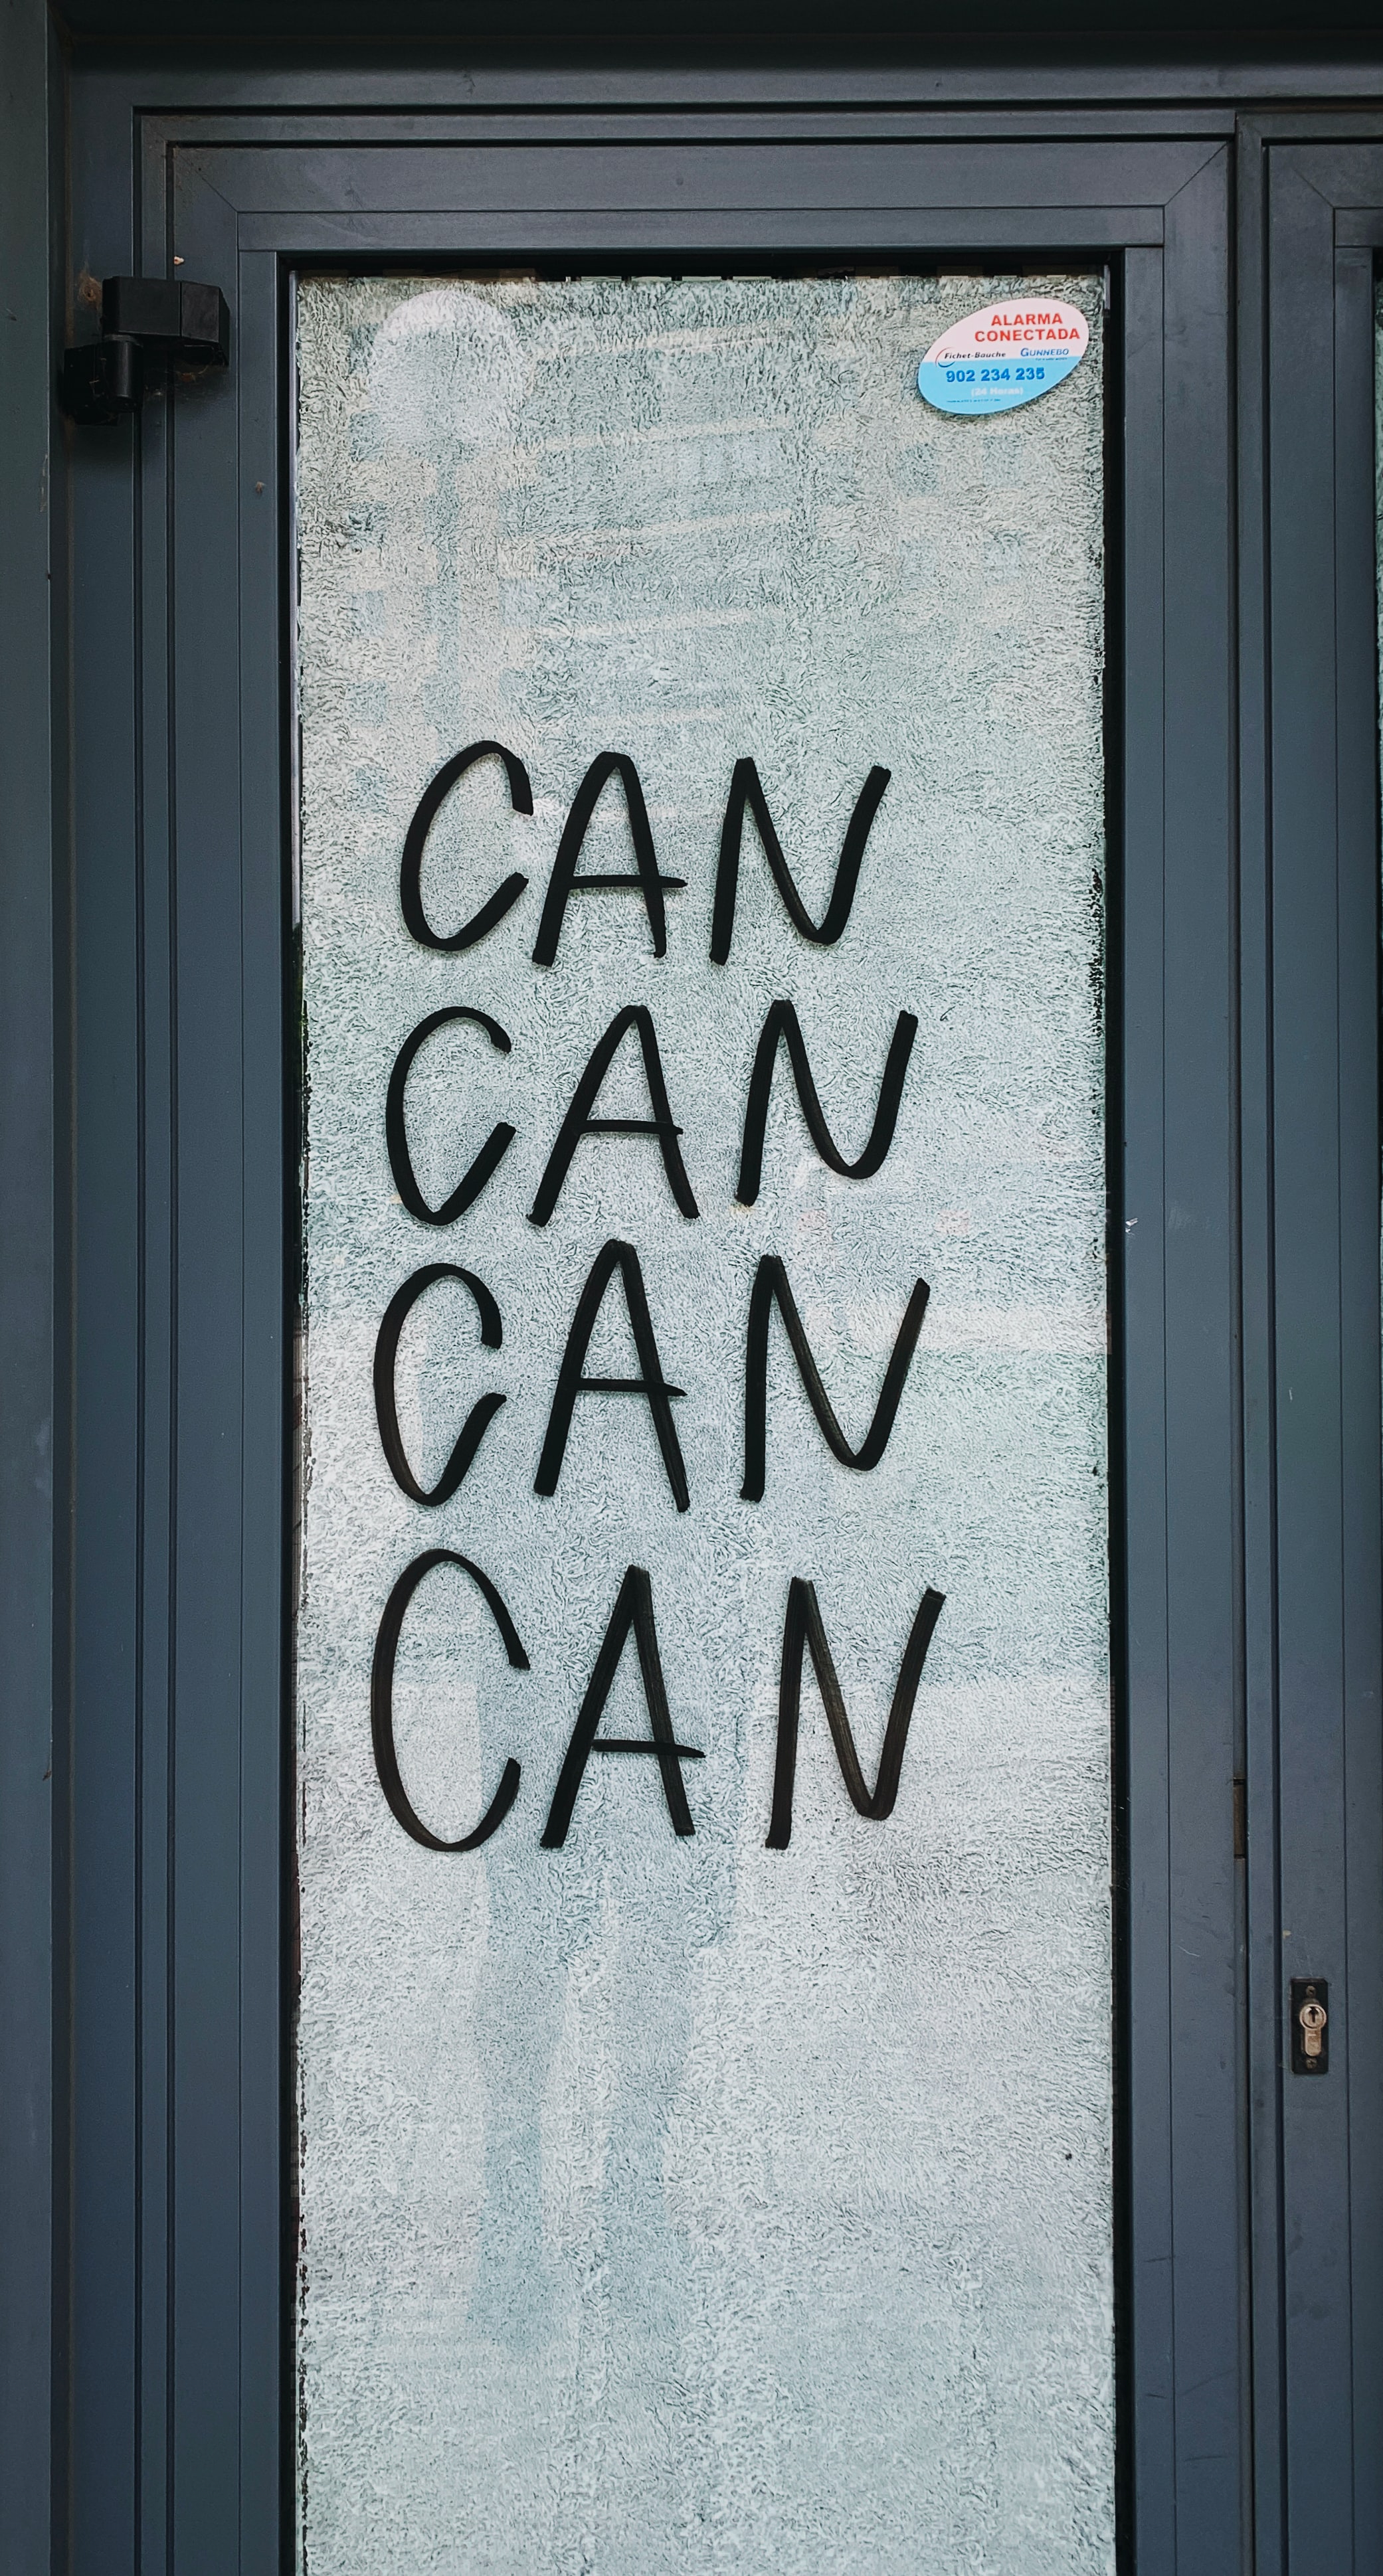 ALARMA
CONECTADA
Fichet-Bauche GUNNEBO
902 234 235
(24 Horas)
CAN
CAN
CAN
CAN